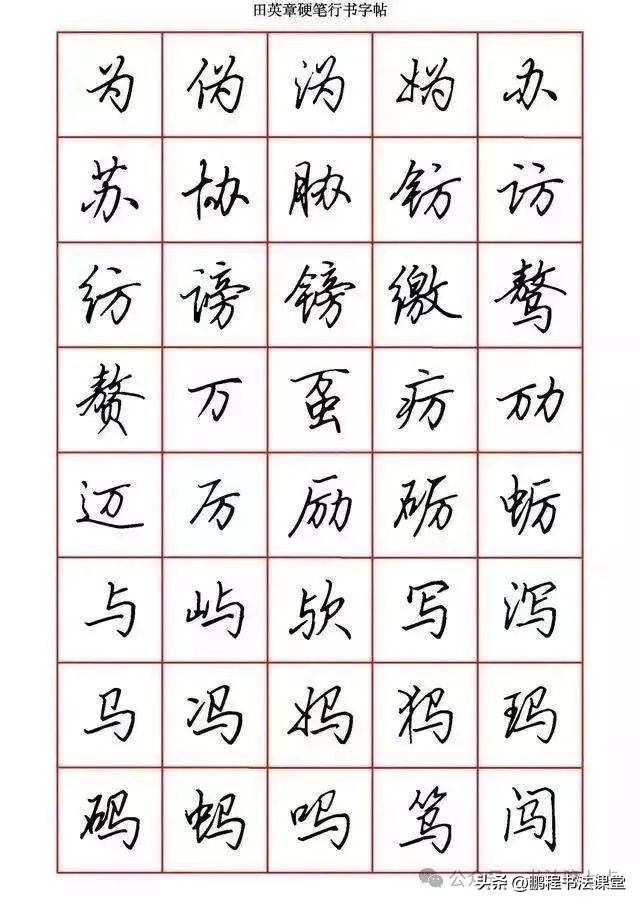 田英章硬笔行书字帖
为 伪 沩 妫 办
苏 协 胁 钫 访
纺 谤 镑 缴 骜
赘 万 虿 疠 劢
迈 厉 励 砺 蛎
与 屿 欤 写 泻
马 冯 妈 犸 玛
码 蚂 吗 笃 闯
头条 @鹏程书法课堂